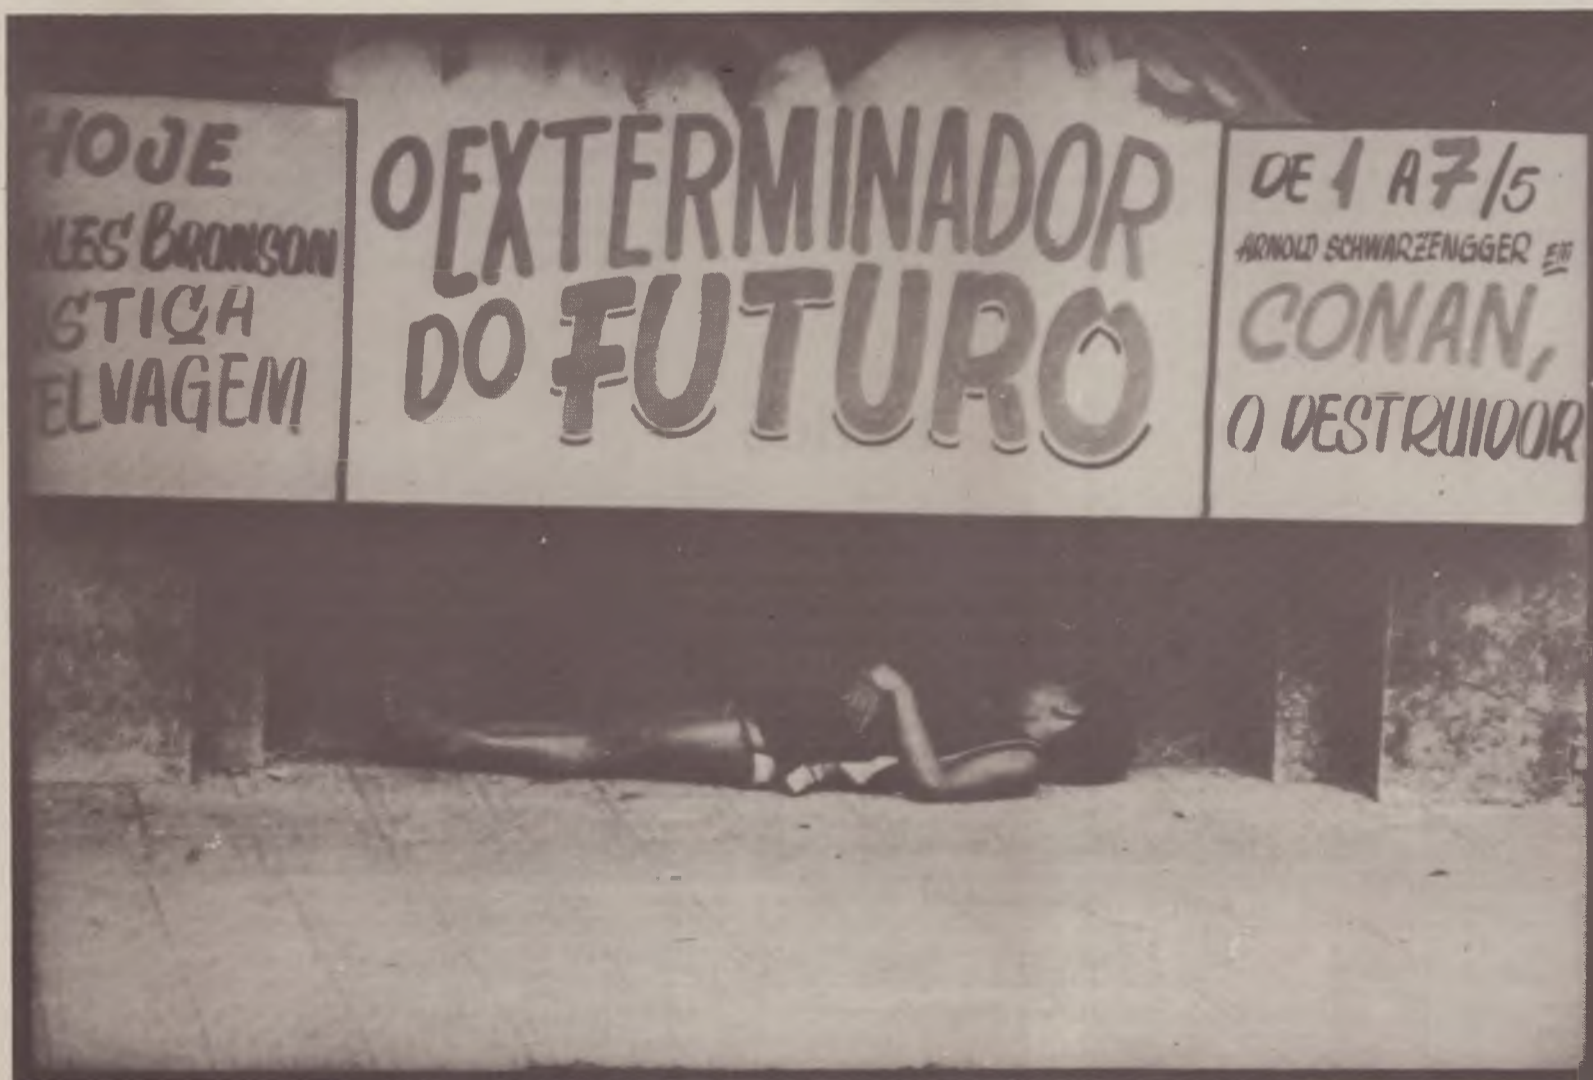 HOJE
BRONSON
STIÇA
ELVAGEM
O EXTERMINADOR
DO FUTURO
DE 1 A 7/5
ARNOLD SCHWARZENGGER EM
CONAN,
O DESTRUIDOR